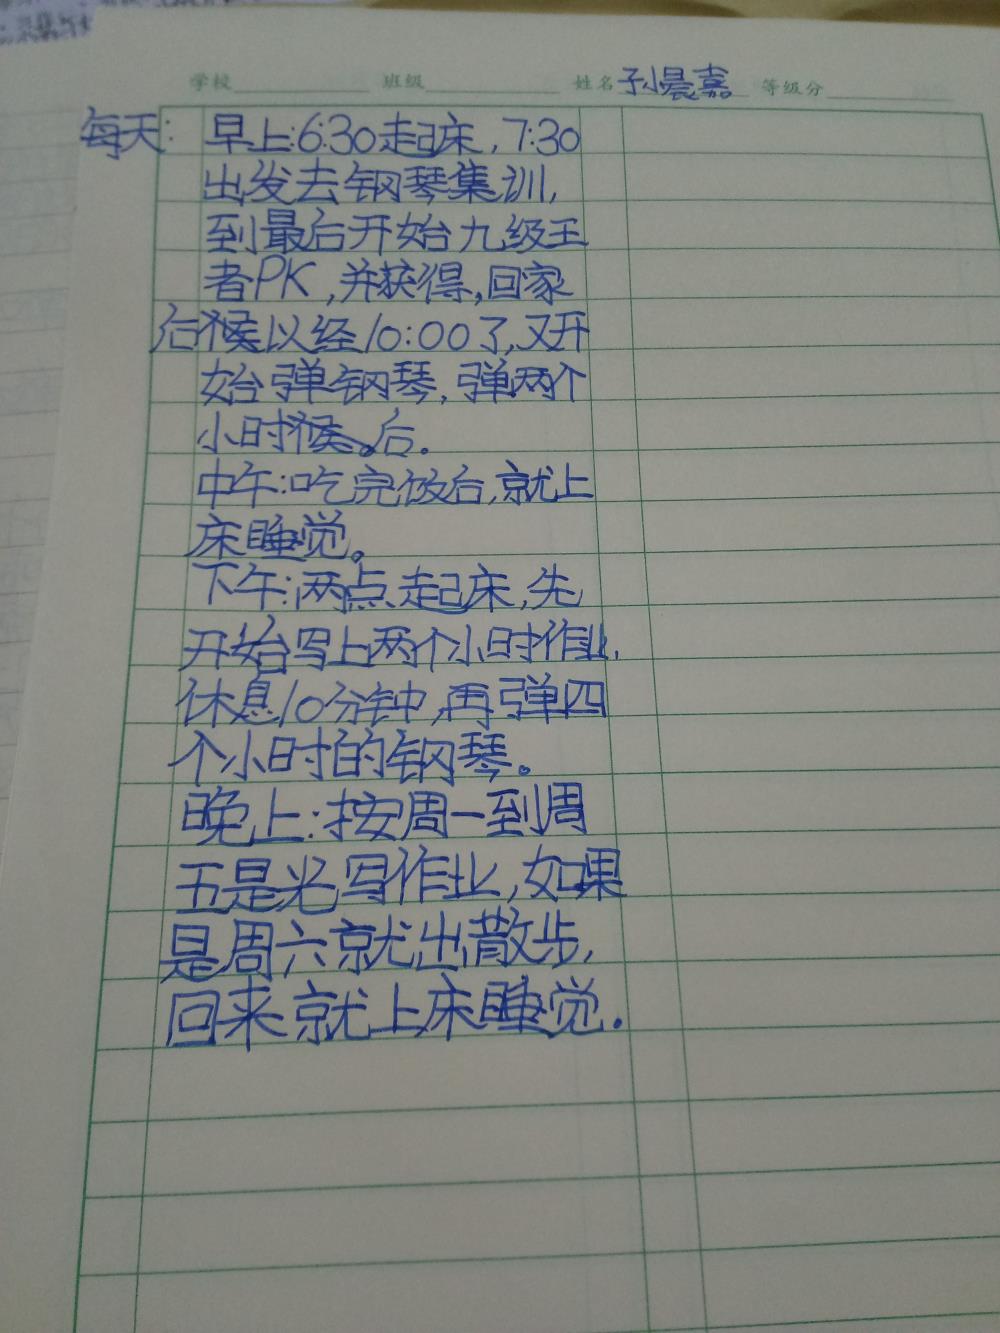 学校 班级 姓名 孙晨嘉 等级分
每天: 早上:6:30起床,7:30
出发去钢琴集训,
到最后开始九级王
者PK,并获得,回家
后候以经10:00了,又开
始弹钢琴,弹两个
小时候。后.
中午:吃完饭后,就上
床睡觉。
下午:两点起床,先
开始写上两个小时作业,
休息10分钟,再弹四
个小时的钢琴。
晚上:按周一到周
五是光写作业,如果
是周六就出散步,
回来就上床睡觉.